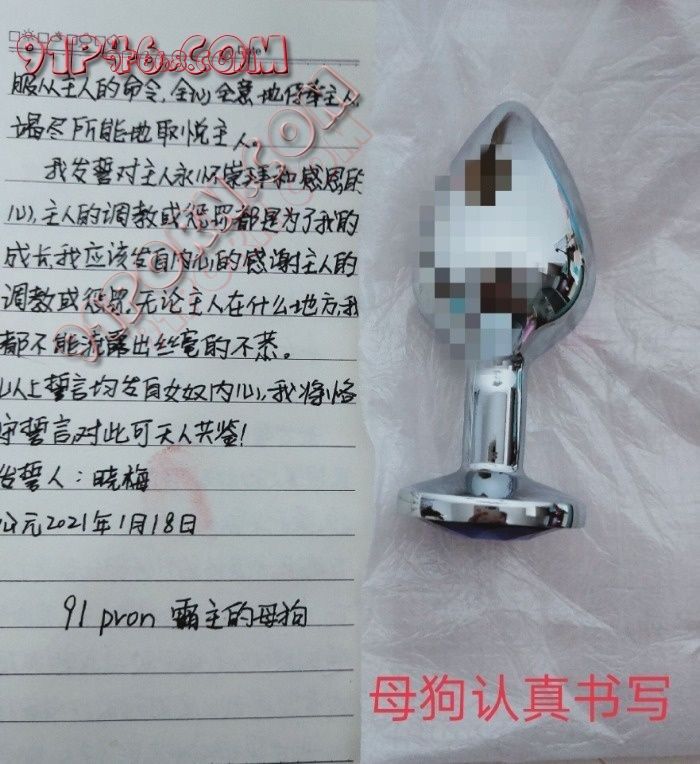 91P46.COM
服从主人的命令,全心全意地侍奉主人,
竭尽所能地取悦主人。
我发誓对主人永怀崇拜和感恩的
心,主人的调教或惩罚都是为了我的
成长,我应该发自内心的感谢主人的
调教或惩罚。无论主人在什么地方,我
都不能流露出丝毫的不恭。
以上誓言均发自女奴内心,我将恪
守誓言对此可天人共鉴!
发誓人:晓梅
公元2021年1月18日
91 pron 霸主的母狗
母狗认真书写